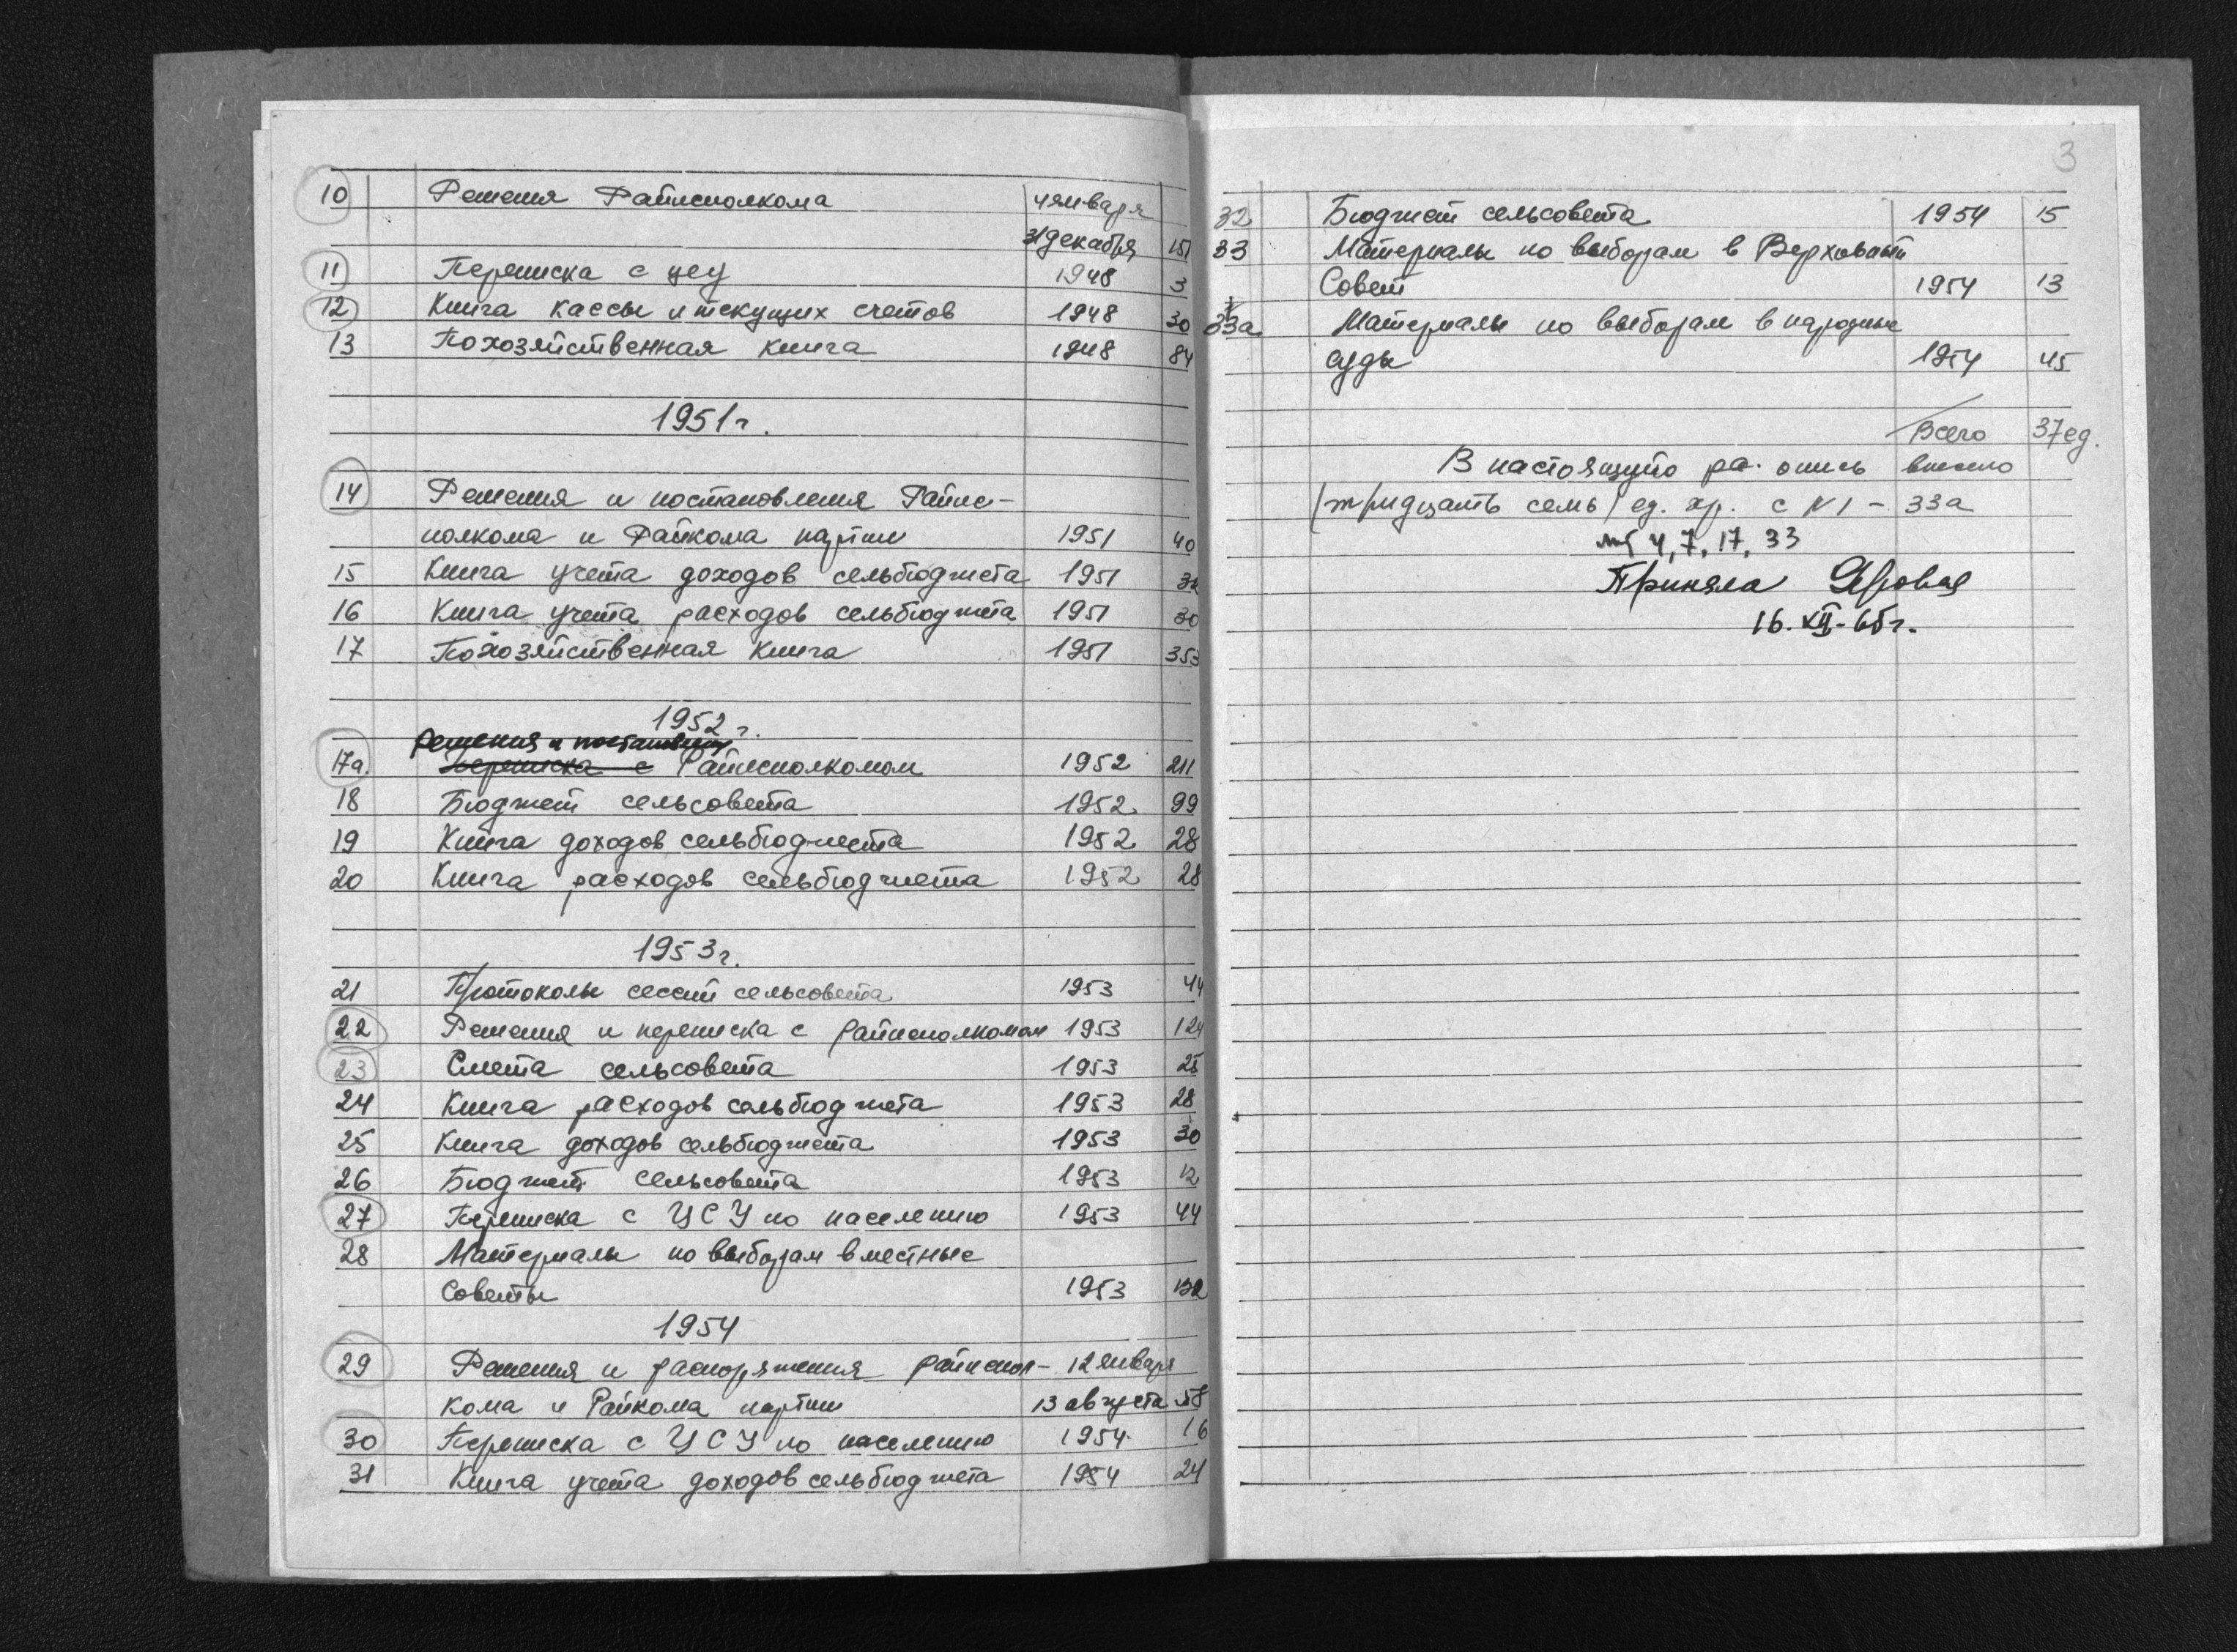 10 Решения Райисполкома 4 января
31 декабря 151
11 Переписка с ЦСУ 1948 3
12 Книга кассы и текущих счетов 1948 30
13 Похозяйственная книга 1948 84
1951 г.
14 Решения и постановления Райис-
полкома и Райкома партии 1951 40
15 Книга учета доходов сельбюджета 1951 32
16 Книга учета расходов сельбюджета 1951 30
17 Похозяйственная книга 1951 353
1952 г.
Решения и постановления
17а. Переписка с Райисполкомом 1952 211
18 Бюджет сельсовета 1952 99
19 Книга доходов сельбюджета 1952 28
20 Книга расходов сельбюджета 1952 28
1953 г.
21 Протоколы сессий сельсовета 1953 44
22 Решения и переписка с райисполкомом 1953 124
23 Смета сельсовета 1953 25
24 Книга расходов сельбюджета 1953 28
25 Книга доходов сельбюджета 1953 30
26 Бюджет сельсовета 1953 12
27 Переписка с ЦСУ по населению 1953 44
28 Материалы по выборам в местные
Советы 1953 132
1954
29 Решения и распоряжения райиспол- 12 января
кома и Райкома партии 13 августа 58
30 Переписка с ЦСУ по населению 1954 16
31 Книга учета доходов сельбюджета 1954 24
3
32 Бюджет сельсовета 1954 15
33 Материалы по выборам в Верховный
Совет 1954 13
33а Материалы по выборам в народные
суды 1954 45
Всего 37 ед.
В настоящую опись внесено
/тридцать семь/ ед. хр. с N 1 - 33а
4, 7, 17, 33
Приняла Яровая
16. XII - 65 г.